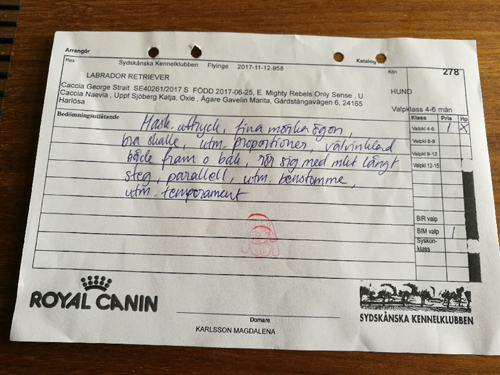 Arrangör
Katalog
Sydskånska Kennelklubben Flyinge 2017-11-12-958
Ras
Kön
278
LABRADOR RETRIEVER
HUND
Caccia George Strait SE40261/2017 S FÖDD 2017-06-25, E. Mighty Rebels Only Sense , U
Caccia Naevia , Uppf Sjöberg Katja, Oxie , Ägare Gavelin Marita, Gårdstångavägen 6, 24165
Harlösa
Valpklass 4-6 mån
Bedömningsutlåtande
Klass Pris Hp
Valpkl 4-6 1 X
Valpkl 6-9
Valpkl 9-12
Valpkl 12-15
Mask. uttryck, fina mörka ögon,
bra skalle, utm. proportioner, välvinklad
både fram o bak, rör sig med mkt långt
steg, parallell, utm. benstomme,
utm. temperament
BIR valp
BIM valp 1
Syskon-
klass
ROYAL CANIN
SYDSKÅNSKA KENNELKLUBBEN
Domare
KARLSSON MAGDALENA